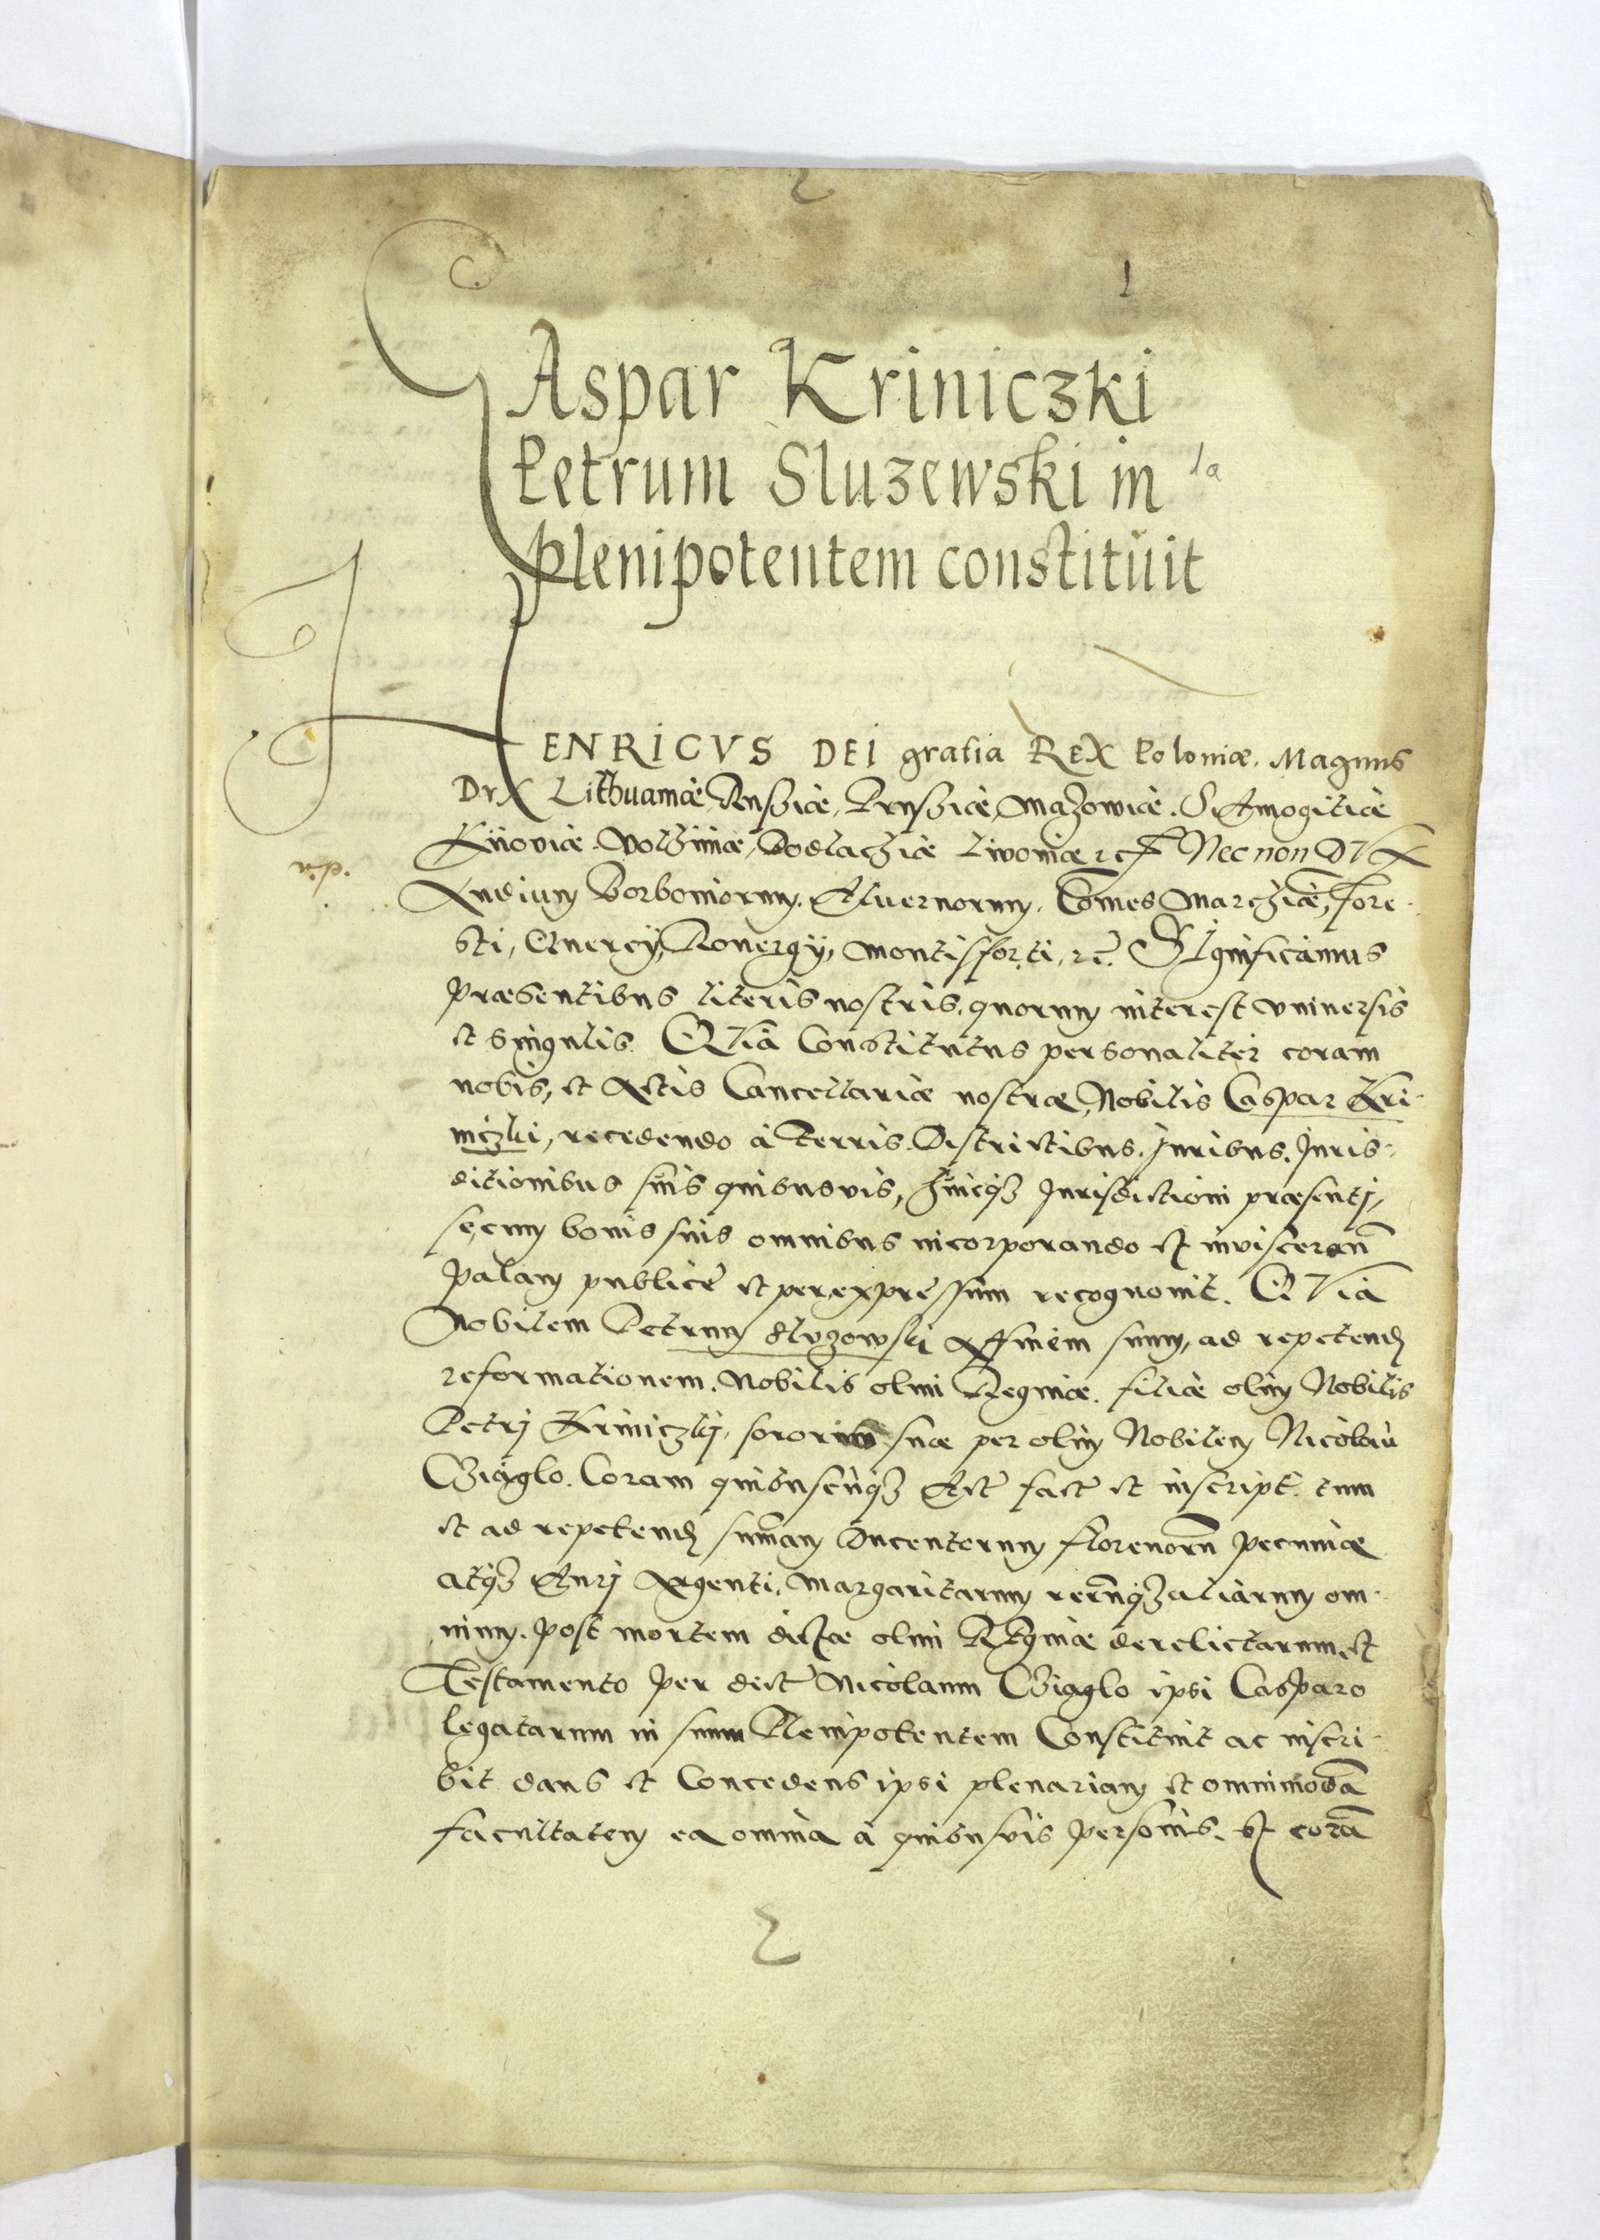 1
CAspar Kriniczki
Petrum Sluzewski in
plenipotentem constituit
HENRICVS DEI gratia REX Poloniæ. Magnus
DVX Lithuaniæ, Russiæ, Prussiæ, Mazowiæ. SAmogitiæ
Kijoviæ. Volhiniæ, Podlachiæ Livoniæ etc Nec non DVX
Andium Borboniorum. Aluernorum. Comes Marchiæ, Fore-
sti, Quercÿ, Rouergÿ, Montisforti, etc. SIgnificamus
præsentibus literis nostris, quorum interest vniuersis
et singulis. QVia Constitutus personaliter coram
nobis, et Actis Cancellariæ nostræ, Nobilis Caspar Kri-
niczki, recedendo à Terris. Districtibus. Juribus. Juris-
ditionibus suis quibusvis, huicqz Jurisdictioni præsentj,
se, cum bonis suis omnibus incorporando et inviscerand
palam publicè et per expressum recognouit. QVia
Nobilem Petrum Sluzowski Affinem suum, ad repetend
reformationem. Nobilis olim Reginæ. filiæ olim Nobilis
Petrj Kriniczkj, sororis suæ per olim Nobilem Nicolau
Giąglo. Coram quibuscunqz Act fact et inscript. tum
et ad repetend summam Ducentorum florenorum pecuniæ
atqz Aurj Argenti. Margaritarum rerumqz aliarum om-
nium. post mortem dictæ olim REginæ derelictarum, et
Testamento per dict Nicolaum Giąglo ipsi Casparo
legatarum in suum Plenipotentem Constituit ac inscri-
bit dans et Concedens ipsi plenariam et omnimodã
facultatem ea omnia à quibusvis personis. et corã